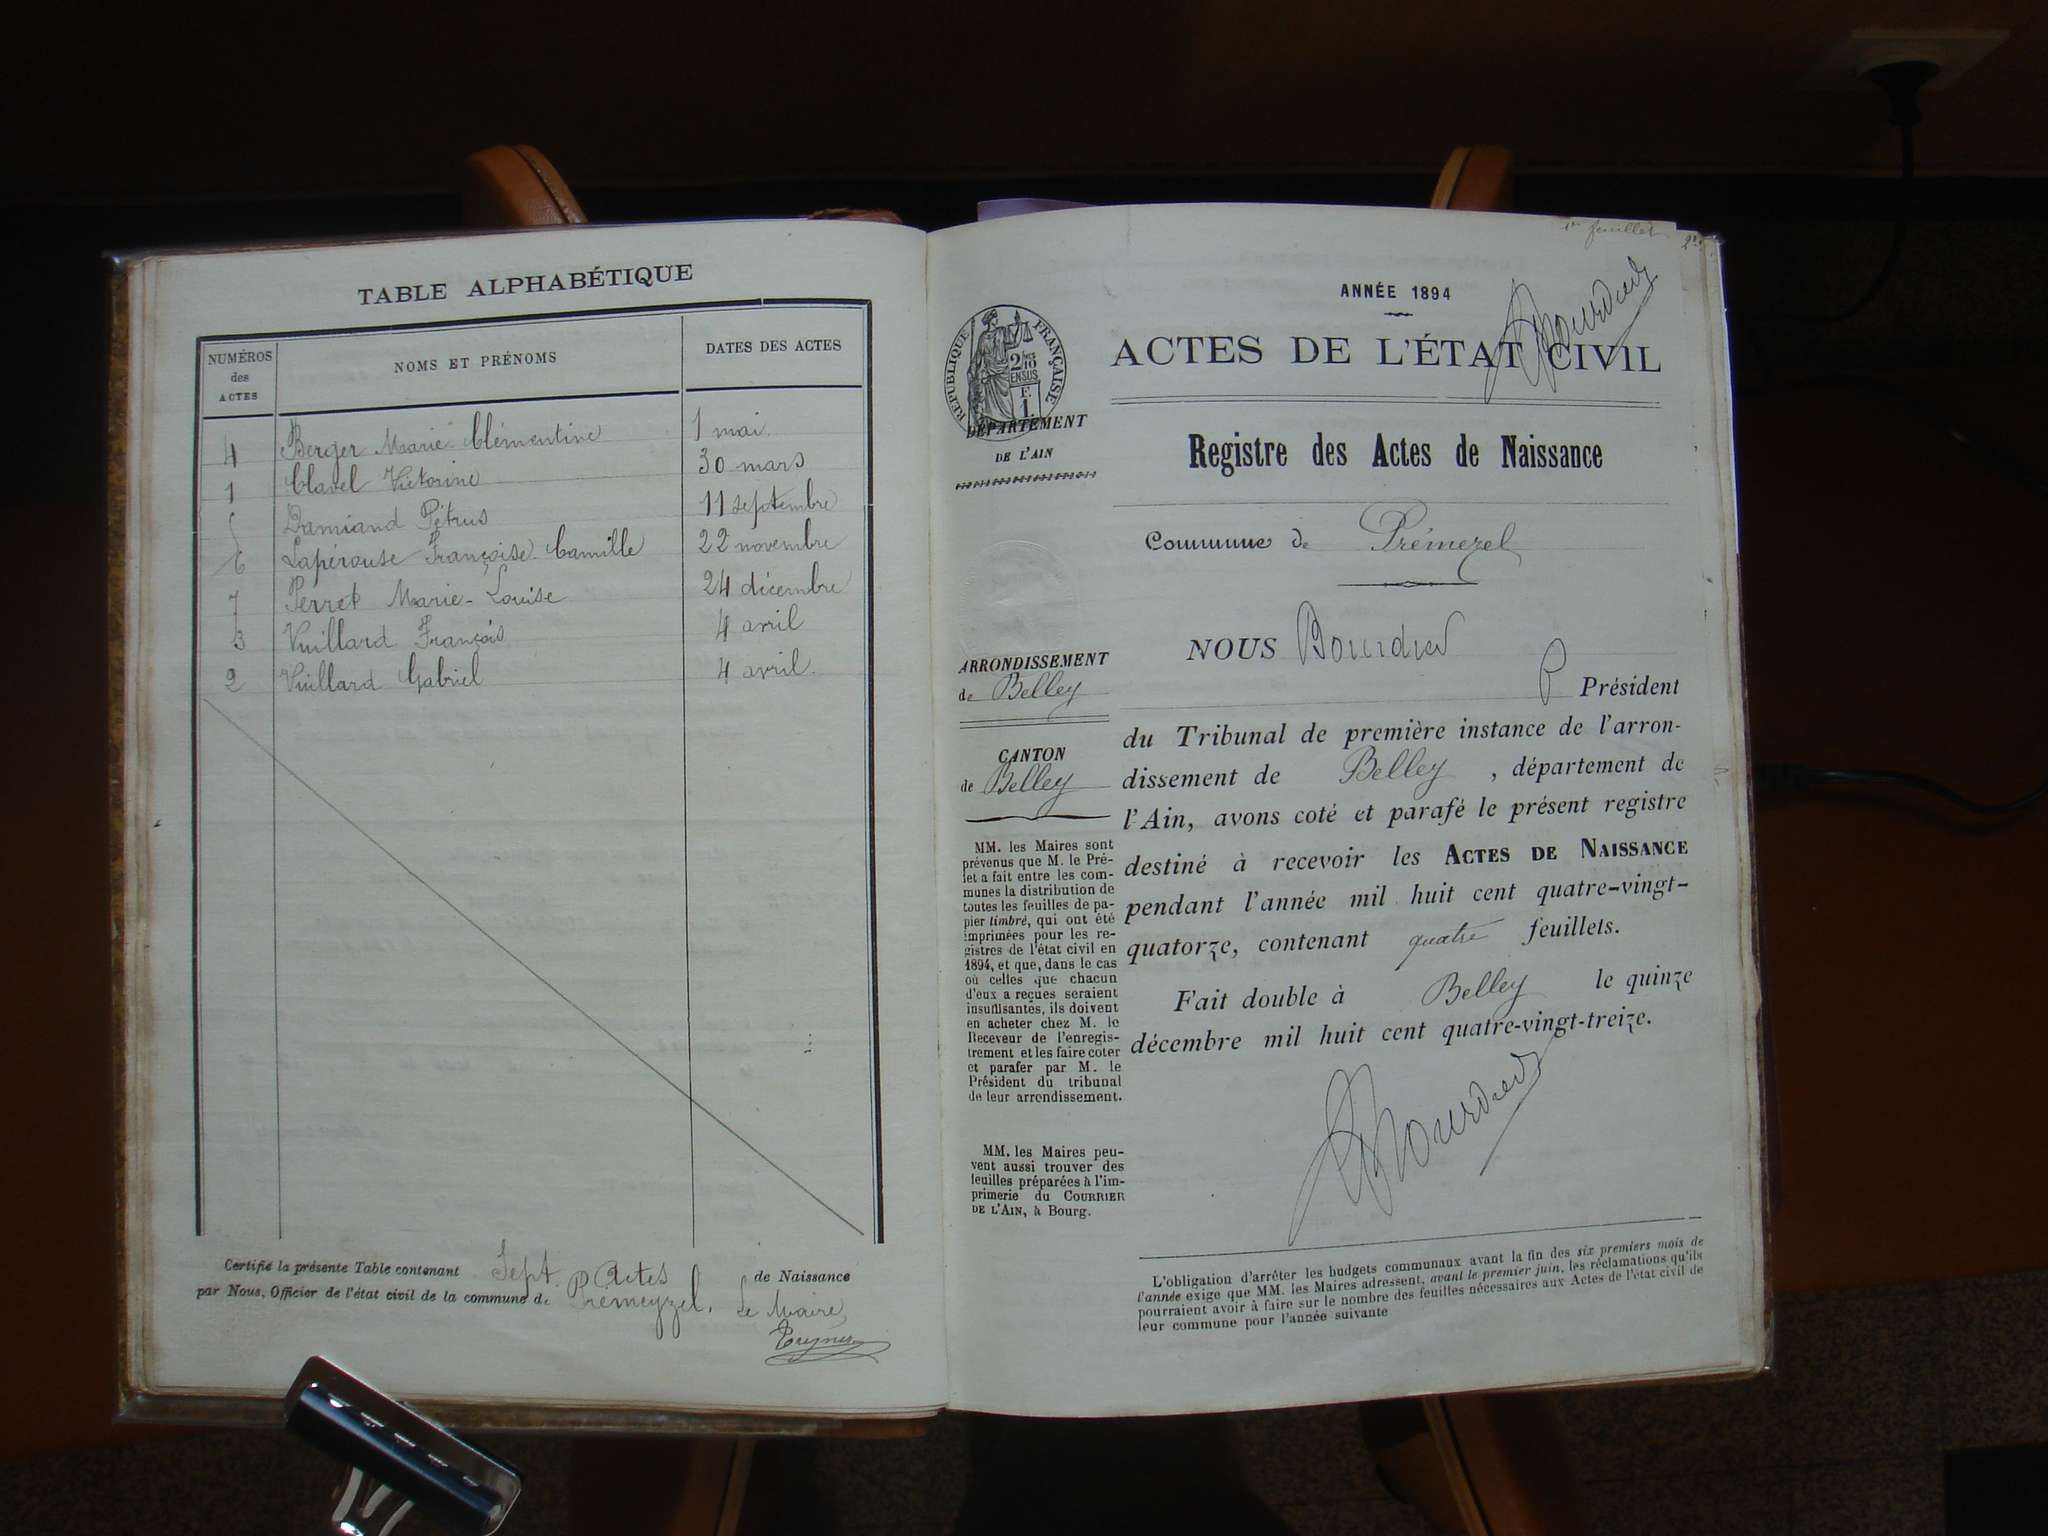 TABLE ALPHABÉTIQUE
NUMÉROS
des
ACTES
NOMS ET PRÉNOMS
DATES DES ACTES
4 Berger Marie Clémentine 1 mai
1 Clavel Victorine 30 mars
5 Damiand Pétrus 11 septembre
6 Lapérouse Françoise Camille 22 novembre
7 Perret Marie-Louise 24 décembre
3 Vuillard François 4 avril
2 Vuillard Gabriel 4 avril.
Certifié la présente Table contenant Sept Actes de Naissance
par Nous, Officier de l'état civil de la commune de Prémeyzel. Le Maire,
1er feuillet
ANNÉE 1894
Bourdin
ACTES DE L'ÉTAT CIVIL
RÉPUBLIQUE FRANÇAISE
DÉPARTEMENT
DE L'AIN
Registre des Actes de Naissance
Commune de Prémezel
NOUS Bourdin
P Président
ARRONDISSEMENT
de Belley
CANTON
de Belley
du Tribunal de première instance de l'arron-
dissement de Belley, département de
l'Ain, avons coté et parafé le présent registre
destiné à recevoir les ACTES DE NAISSANCE
pendant l'année mil huit cent quatre-vingt-
quatorze, contenant quatre feuillets.
Fait double à Belley le quinze
décembre mil huit cent quatre-vingt-treize.
Bourdin
MM. les Maires sont
prévenus que M. le Pré-
fet a fait entre les com-
munes la distribution de
toutes les feuilles de pa-
pier timbré, qui ont été
imprimées pour les re-
gistres de l'état civil en
1894, et que, dans le cas
où celles que chacun
d'eux a reçues seraient
insuffisantes, ils doivent
en acheter chez M. le
Receveur de l'enregis-
trement et les faire coter
et parafer par M. le
Président du tribunal
de leur arrondissement.
MM. les Maires peu-
vent aussi trouver des
feuilles préparées à l'im-
primerie du COURRIER
DE L'AIN, à Bourg.
L'obligation d'arrêter les budgets communaux avant la fin des six premiers mois de
l'année exige que MM. les Maires adressent, avant le premier juin, les réclamations qu'ils
pourraient avoir à faire sur le nombre des feuilles nécessaires aux Actes de l'état civil de
leur commune pour l'année suivante